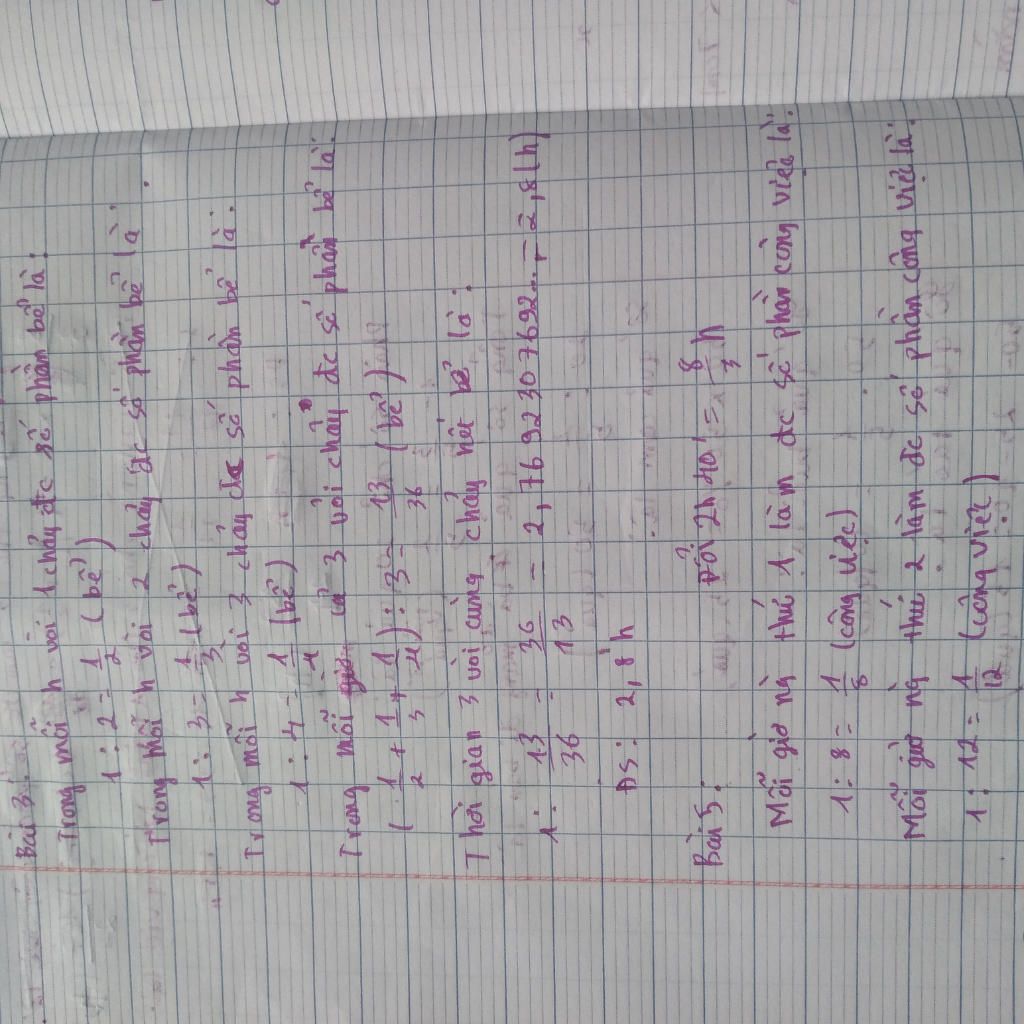 Bài 3:
Trong mỗi h vòi 1 chảy đc số phần bể là:
1 : 2 = 1/2 (bể)
Trong mỗi h vòi 2 chảy đc số phần bể là:
1 : 3 = 1/3 (bể)
Trong mỗi h vòi 3 chảy đc số phần bể là:
1 : 4 = 1/4 (bể)
Trong mỗi giờ cả 3 vòi chảy đc số phần bể là:
(1/2 + 1/3 + 1/4) : 3 = 13/36 (bể)
Thời gian 3 vòi cùng chảy hết bể là:
1 : 13/36 = 36/13 = 2,7692307692... = 2,8 (h)
Đs: 2,8 h
Bài 5: Đổi 2h40' = 8/3 h
Mỗi giờ ng thứ 1 làm đc số phần công việc là:
1 : 8 = 1/8 (công việc)
Mỗi giờ ng thứ 2 làm đc số phần công việc là:
1 : 12 = 1/12 (công việc)